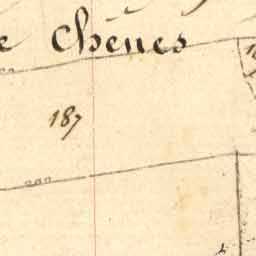 e Chênes
187